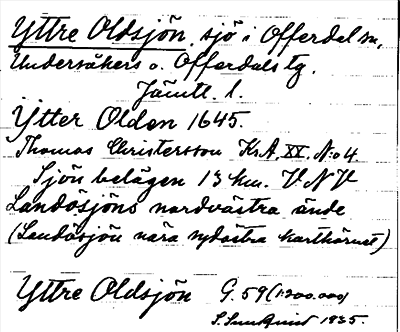 Yttre Oldsjön, sjö i Offerdal sn,
Undersåkers o. Offerdals tg.
Jämtl. l.
Ytter Olden 1645.
Thomas Christersson KrA. XX. N:o 4
Sjön belägen 13 km. VNV
Landösjöns nordvästra ände
(Landösjön nära sydöstra karthörnet)
Yttre Oldsjön G. 59 (1:200.000)
S. Sundquist 1935.